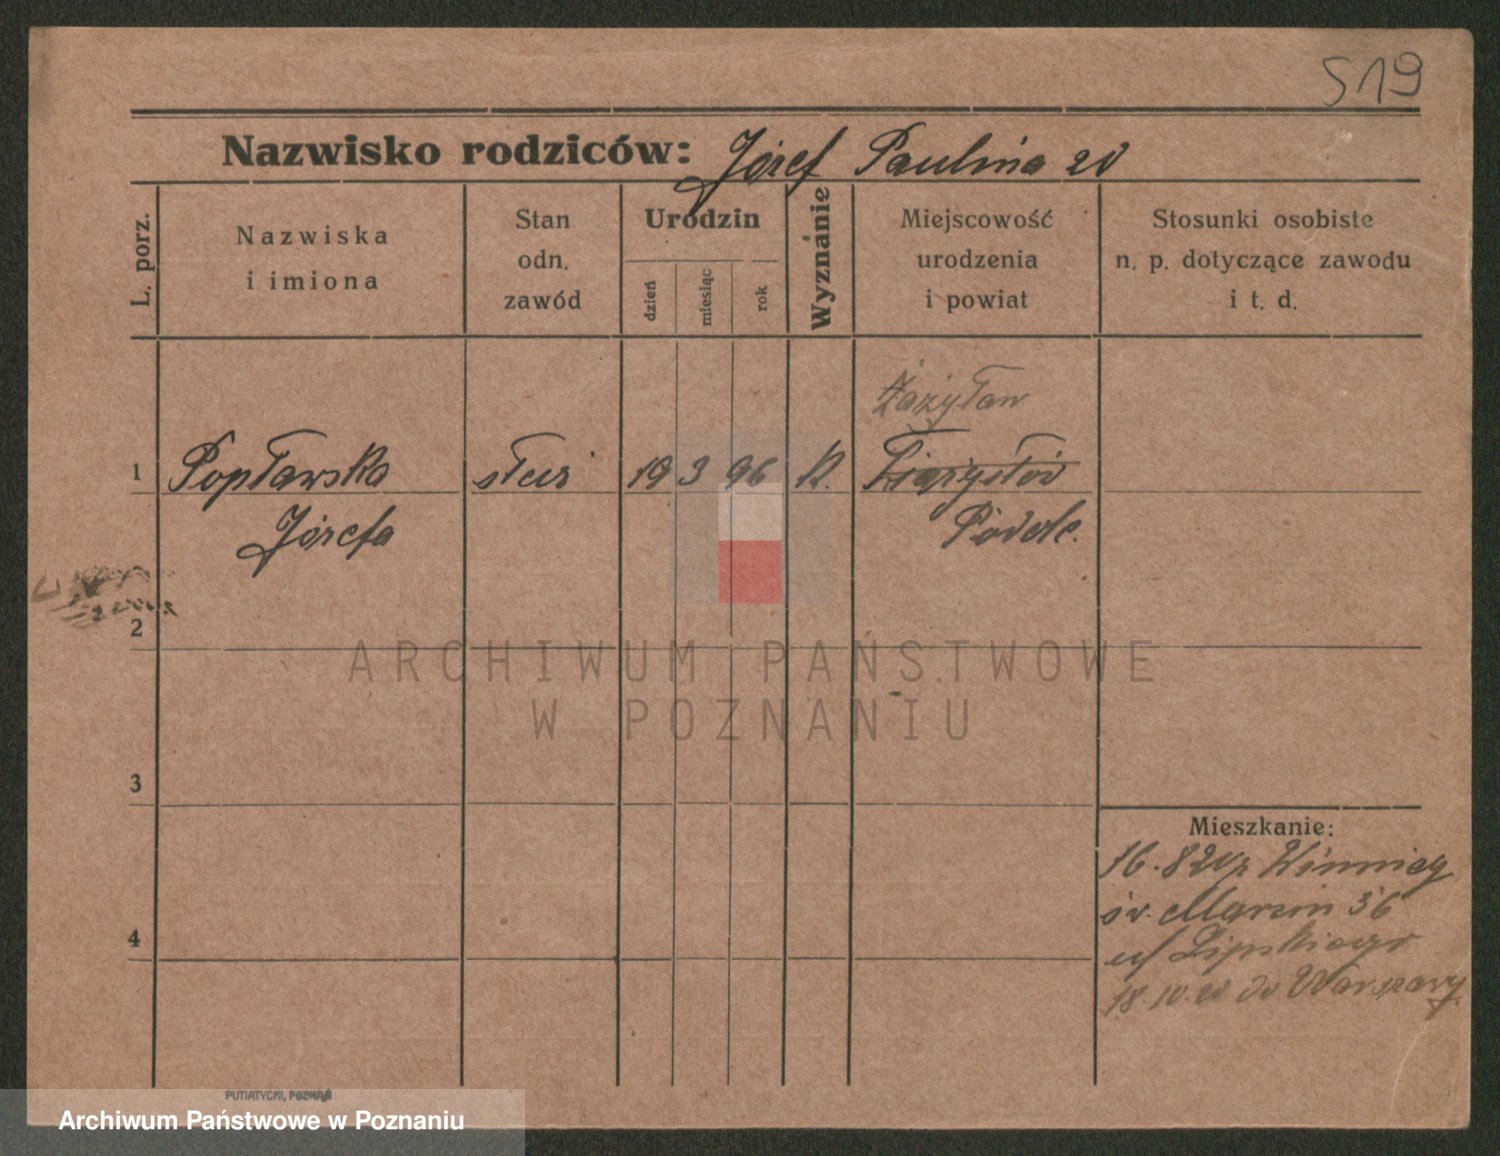 519
Nazwisko rodziców: Józef Paulina
L. porz.
Nazwiska
i imiona
Stan
odn.
zawód
Urodzin
dzień
miesiąc
rok
Wyznánie
Miejscowość
urodzenia
i powiat
Stosunki osobiste
n. p. dotyczące zawodu
i t. d.
1 Popławska służ 19 3 96 K.
Józefa
2
3
4
Mieszkanie:
16.8 20 z Winnicy
św. Marcin 56
u Lipskiego
18.10.20 do Warszawy
ARCHIWUM PAŃSTWOWE
W POZNANIU
PUTIATYCKI, POZNAŃ
Archiwum Państwowe w Poznaniu